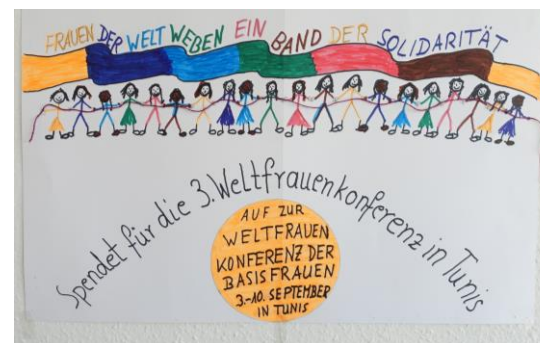 FRAUEN DER WELT WEBEN EIN BAND DER SOLIDARITÄT
Spendet für die 3. Weltfrauenkonferenz in Tunis
AUF ZUR
WELTFRAUEN
KONFERENZ DER
BASISFRAUEN
3.-10. SEPTEMBER
IN TUNIS